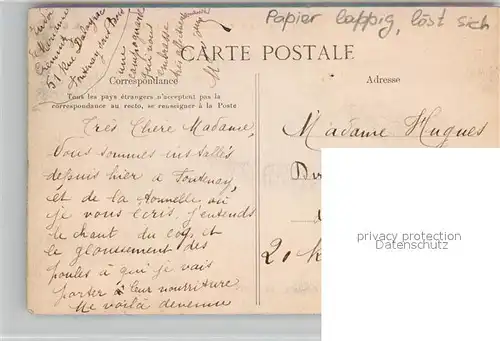 Papier lappig, löst sich
CARTE POSTALE
Correspondance
Adresse
Tous les pays étrangers n'acceptent pas la
correspondance au recto, se renseigner à la Poste
51 Rue
Fontenay sous Bois
une
campagnarde
qui vous
embrasse
bien affectueusement
Très Chere Madame,
Vous sommes installés
depuis hier à Fontenay,
et de la tonnelle où
je vous écris, j'entends
le chant du coq et
le gloussement des
poules à qui je vais
porter à leur nourriture
Me voilà devenue
Madame Hugues
privacy protection
Datenschutz